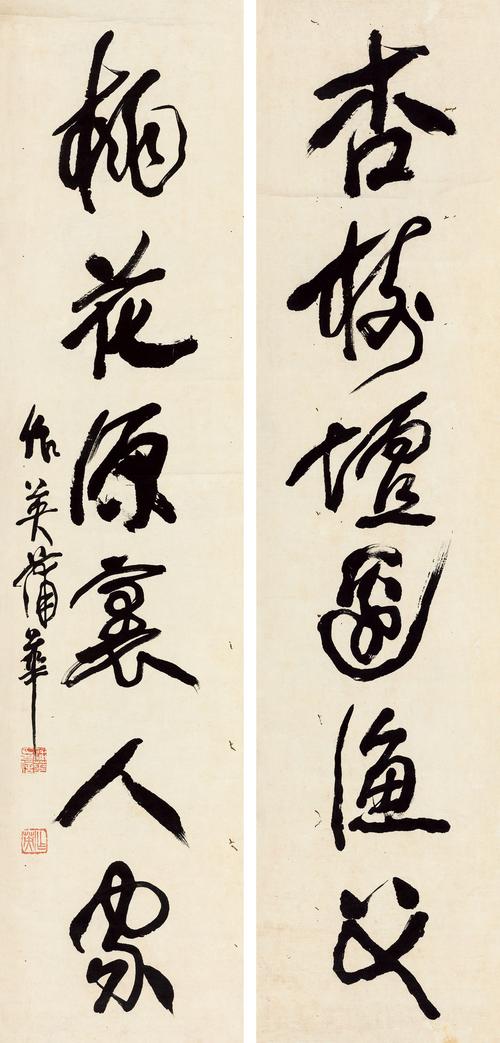 杏樹壇邊漁父
桃花源裏人家
作英蒲華